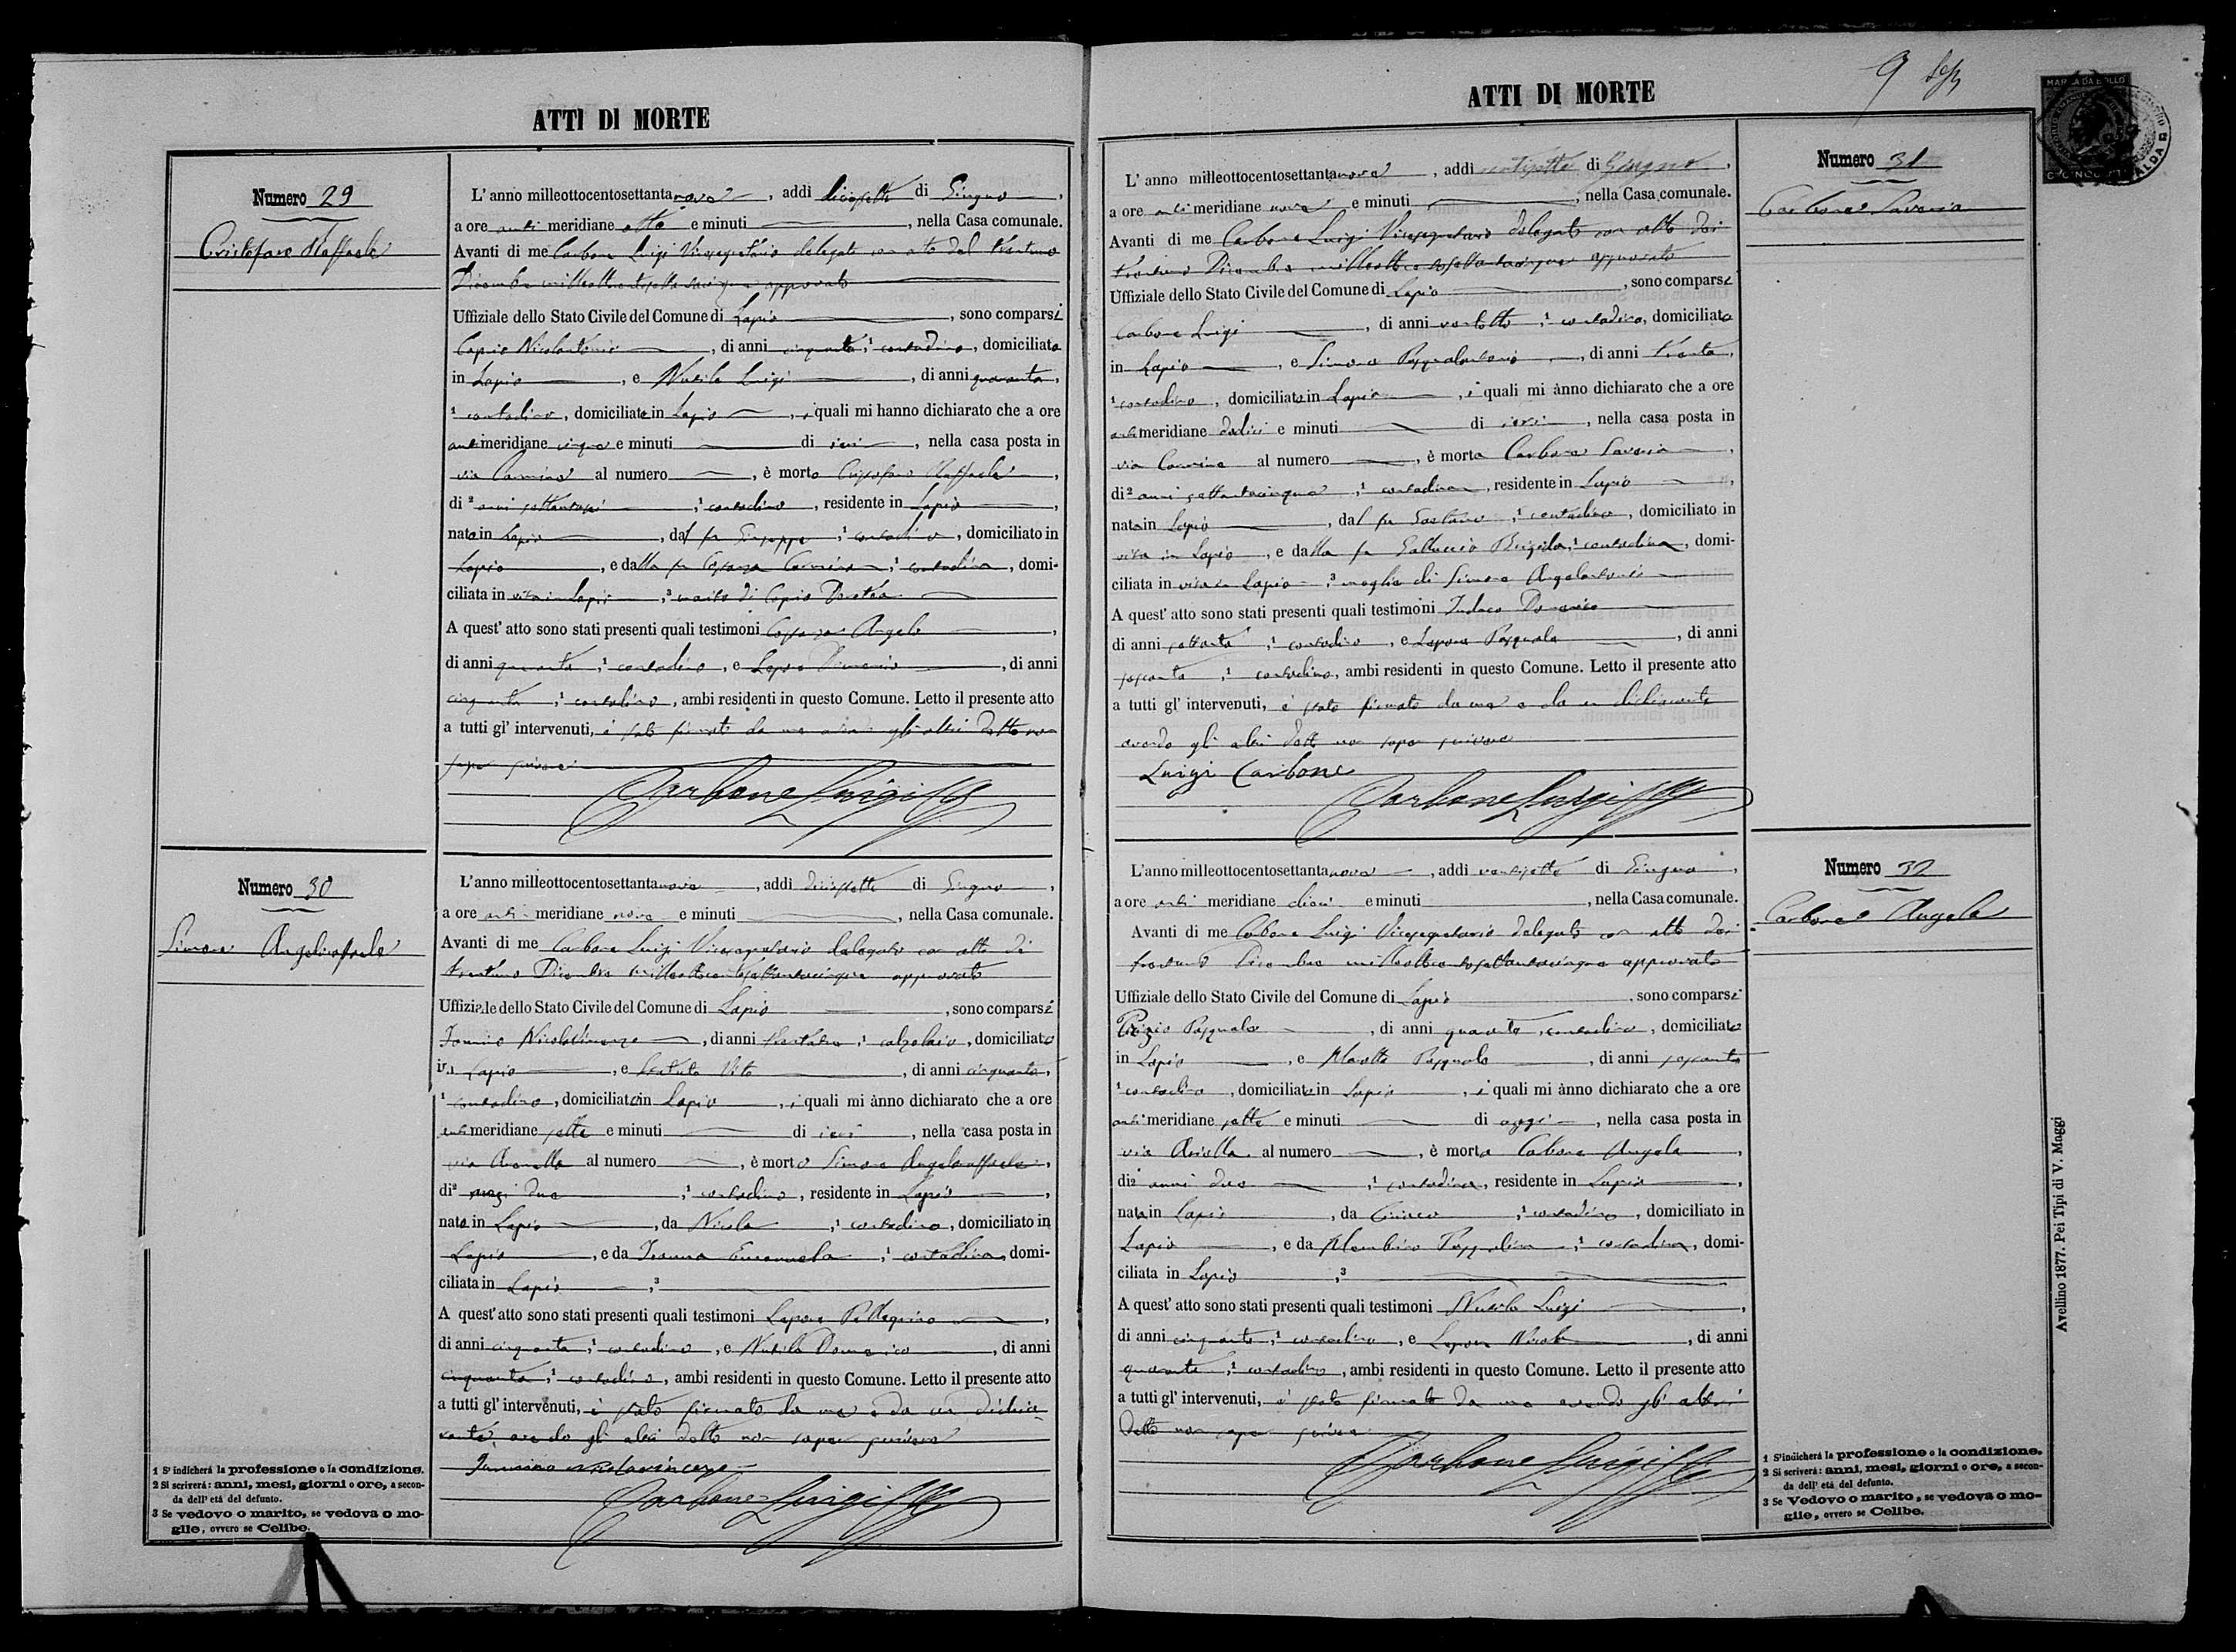 ATTI DI MORTE
Numero 29
Cristofaro Raffaele
L'anno milleottocentosettantanove, addì diciasette di Giugno,
a ore anti meridiane otto e minuti, nella Casa comunale.
Avanti di me Carbone Luigi Vicesegretario delegato con atto del trentuno
Dicembre milleottocentosettantacinque approvato
Uffiziale dello Stato Civile del Comune di Lapio, sono comparsi
Caprio Nicolantonio, di anni cinquanta, ¹ contadino, domiciliato
in Lapio, e Nusilo Luigi, di anni quaranta,
¹ contadino, domiciliato in Lapio, i quali mi hanno dichiarato che a ore
anti meridiane cinque e minuti di ieri, nella casa posta in
via Carmine al numero, è morto Cristofaro Raffaele,
di ² anni settantasei, ¹ contadino, residente in Lapio,
nato in Lapio, dal fu Giuseppe, ¹ contadino, domiciliato in
Lapio, e dalla fu Carmina, ¹ contadina, domi-
ciliata in vita in Lapio, ³ marito di Caprio Dorotea
A quest' atto sono stati presenti quali testimoni Angelo,
di anni quaranta, ¹ contadino, e, di anni
cinquanta, ¹ contadino, ambi residenti in questo Comune. Letto il presente atto
a tutti gl' intervenuti, è stato firmato da me avendo gli altri detto non
saper scrivere
Carbone Luigi
Numero 30
Simone Angeloraffaele
L'anno milleottocentosettantanove, addì diciasette di Giugno,
a ore anti meridiane nove e minuti, nella Casa comunale.
Avanti di me Carbone Luigi Vicesegretario delegato con atto di
trentuno Dicembre milleottocentosettantacinque approvato
Uffiziale dello Stato Civile del Comune di Lapio, sono comparsi
Nicolavincenzo, di anni, ¹ calzolaio, domiciliato
in Lapio, e Vito, di anni cinquanta,
¹ contadino, domiciliato in Lapio, i quali mi ànno dichiarato che a ore
anti meridiane sette e minuti di ieri, nella casa posta in
via al numero, è morto Simone Angeloraffaele,
di ² mesi due, ¹ contadino, residente in Lapio,
nato in Lapio, da Nicola, ¹ contadino, domiciliato in
Lapio, e da Emanuela, ¹ contadina, domi-
ciliata in Lapio, ³
A quest' atto sono stati presenti quali testimoni Lapore Pellegrino,
di anni cinquanta, ¹ contadino, e Nusilo Domenico, di anni
cinquanta, ¹ contadino, ambi residenti in questo Comune. Letto il presente atto
a tutti gl' intervenuti, è stato firmato da me e da un dichia-
rante, avendo gli altri detto non saper scrivere
Nicolavincenzo
Carbone Luigi
1 S' indicherà la professione o la condizione.
2 Si scriverà: anni, mesi, giorni o ore, a secon-
da dell' età del defunto.
3 Se vedovo o marito, se vedova o mo-
glie, ovvero se Celibe.
ATTI DI MORTE
9
MARCA DA BOLLO
Numero 31
Carbone Saveria
L' anno milleottocentosettantanove, addì ventisette di Giugno,
a ore anti meridiane nove e minuti, nella Casa comunale.
Avanti di me Carbone Luigi Vicesegretario delegato con atto dei
trentuno Dicembre milleottocentosettantacinque approvato
Uffiziale dello Stato Civile del Comune di Lapio, sono comparsi
Carbone Luigi, di anni ventotto, ¹ contadino, domiciliato
in Lapio, e Simone Pasqualantonio, di anni trenta,
¹ contadino, domiciliato in Lapio, i quali mi ànno dichiarato che a ore
anti meridiane dodici e minuti di ieri, nella casa posta in
via Carmine al numero, è morta Carbone Saveria,
di ² anni settantacinque, ¹ contadina, residente in Lapio,
nata in Lapio, dal fu Gaetano, ¹ contadino, domiciliato in
vita in Lapio, e dalla fu Galluccio Brigida, ¹ contadina, domi-
ciliata in vita in Lapio, ³ moglie di Simone Angelantonio
A quest' atto sono stati presenti quali testimoni Domenico
di anni settanta, ¹ contadino, e Lapore Pasquale, di anni
sessanta, ¹ contadino, ambi residenti in questo Comune. Letto il presente atto
a tutti gl' intervenuti, è stato firmato da me e da un dichiarante
avendo gli altri detto non saper scrivere
Luigi Carbone
Carbone Luigi
Numero 32
Carbone Angela
L'anno milleottocentosettantanove, addì ventisette di Giugno,
a ore anti meridiane dieci e minuti, nella Casa comunale.
Avanti di me Carbone Luigi Vicesegretario delegato con atto dei
trentuno Dicembre milleottocentosettantacinque approvato
Uffiziale dello Stato Civile del Comune di Lapio, sono comparsi
Pasquale, di anni quaranta, contadino, domiciliato
in Lapio, e Pasquale, di anni sessanta
¹ contadino, domiciliato in Lapio, i quali mi ànno dichiarato che a ore
anti meridiane sette e minuti di oggi, nella casa posta in
via al numero, è morta Carbone Angela,
di ² anni due, ¹ contadina, residente in Lapio,
nata in Lapio, da Ciriaco, ¹ contadino, domiciliato in
Lapio, e da Pasqualina, ¹ contadina, domi-
ciliata in Lapio, ³
A quest' atto sono stati presenti quali testimoni Nusilo Luigi,
di anni cinquanta, ¹ contadino, e Lapore Nicola, di anni
quaranta, ¹ contadino, ambi residenti in questo Comune. Letto il presente atto
a tutti gl' intervenuti, è stato firmato da me avendo gli altri
detto non saper scrivere
Carbone Luigi
1 S'indicherà la professione o la condizione.
2 Si scriverà: anni, mesi, giorni o ore, a secon-
da dell' età del defunto.
3 Se Vedovo o marito, se vedova o mo-
glie, ovvero se Celibe.
Avellino 1877. Pei Tipi di V. Maggi